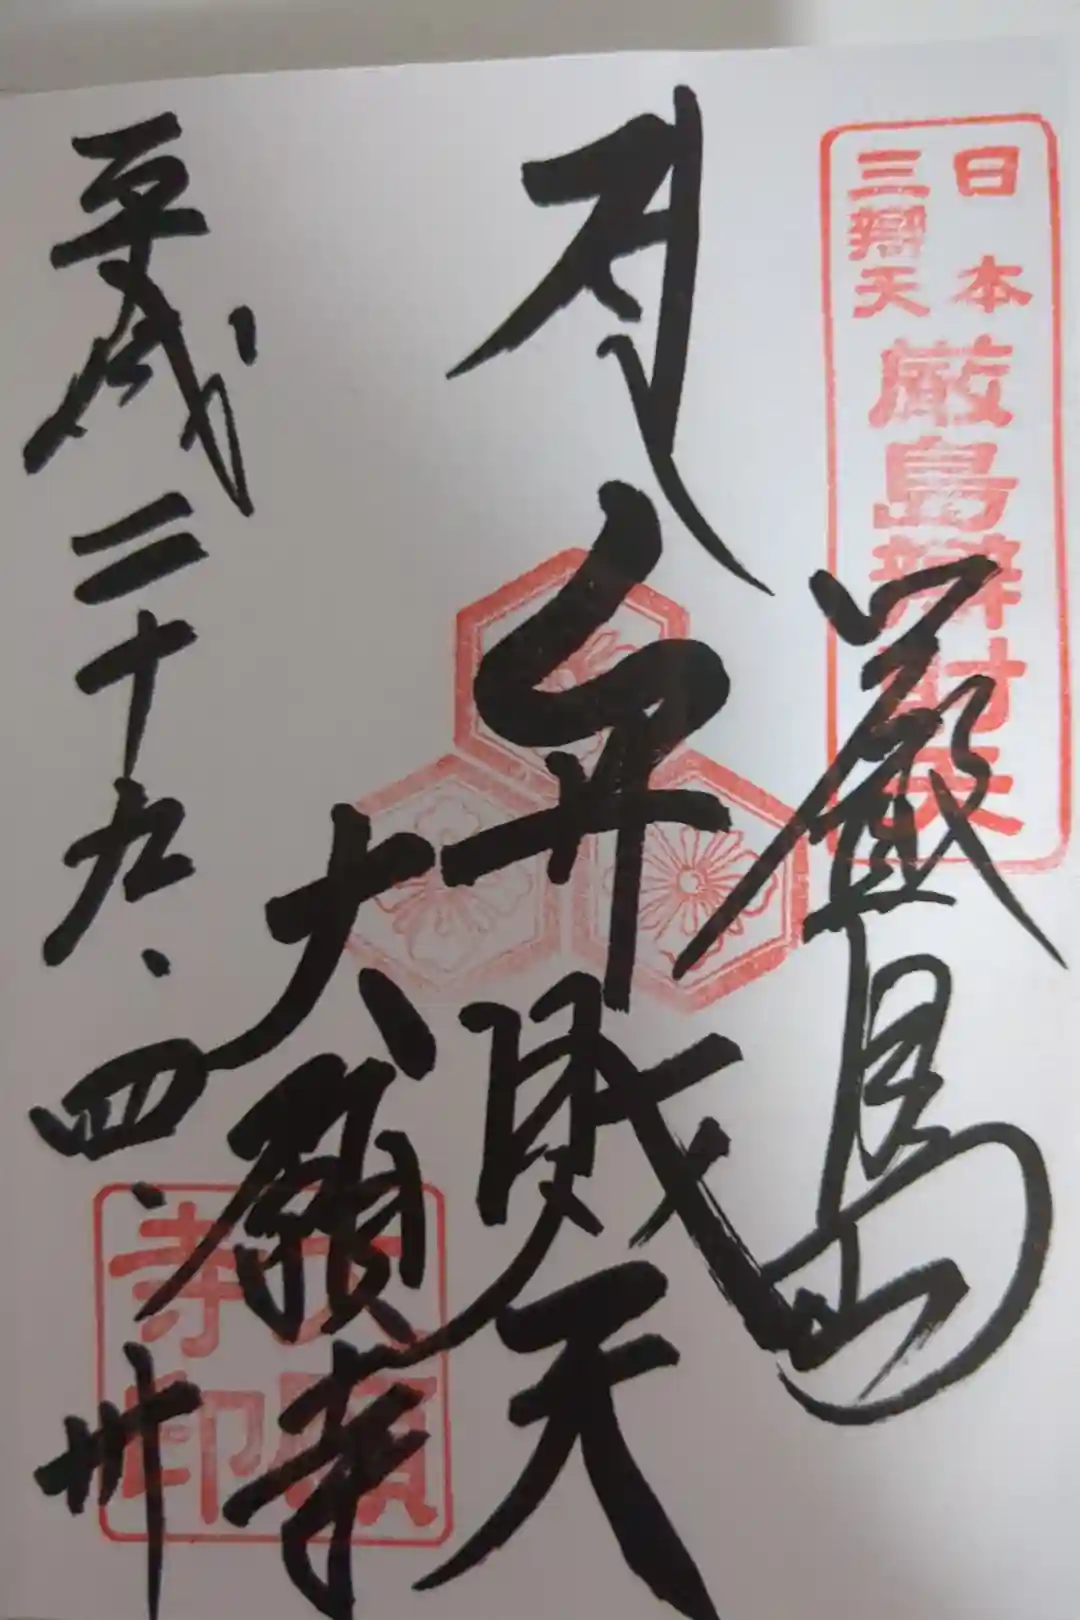 日本
三辯天
厳島辯財天
厳島
弁財天
大願寺
大願
寺印
平成二十九、四、卅